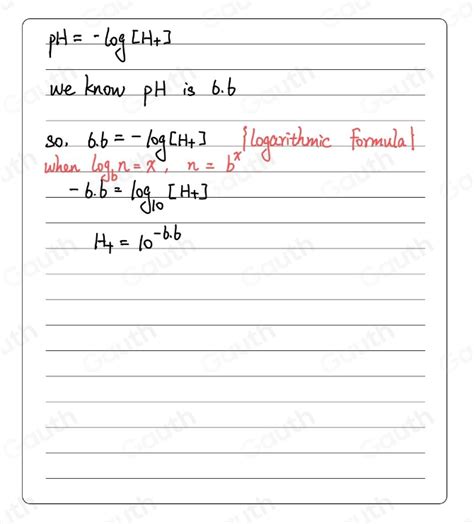 pH = -log[H+]
we know pH is 6.6
so, 6.6 = -log[H+] {logarithmic formula}
when log_b n = x, n = b^x
-6.6 = log_10 [H+]
H+ = 10^-6.6
Gauth